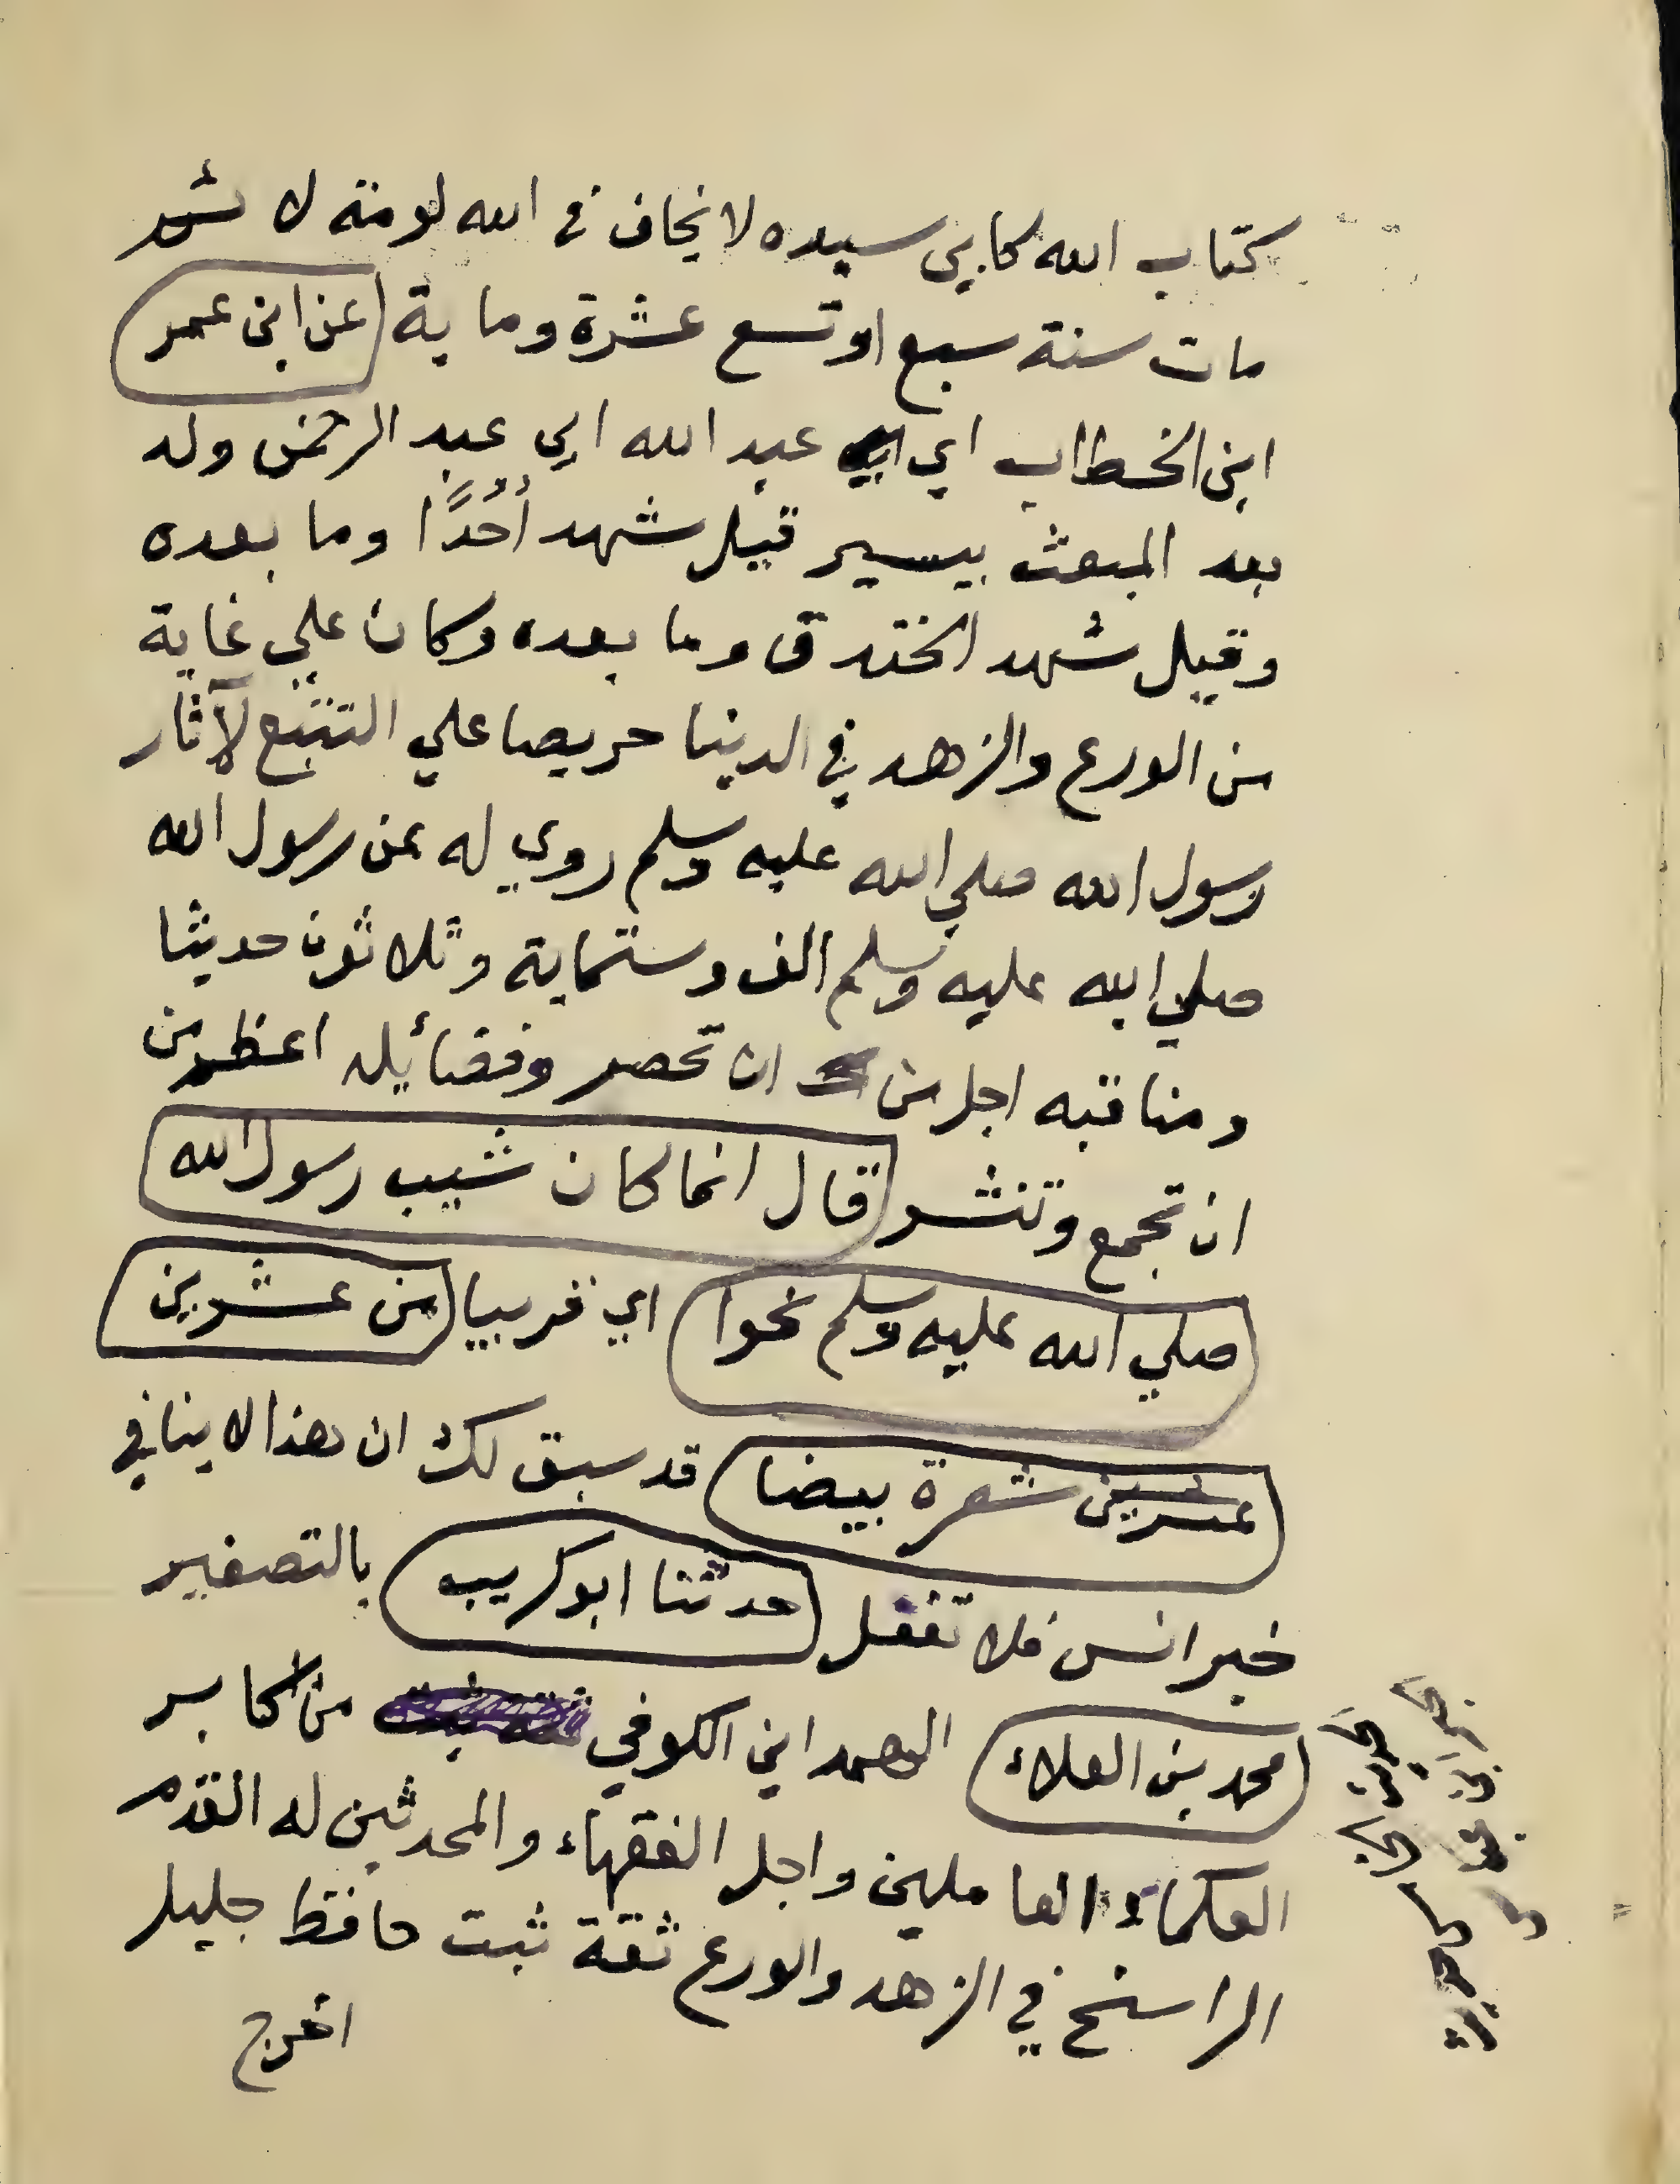 كتاب الله كابي سيده لا يخاف في الله لومة لا ئم
مات سنة سبع او تسع عشرة وماية عن ابن عمر
ابن الخطاب اي عبد الله ابي عبد الرحمن ولد
بعد المبعث بيسير قيل شهد أُحُدًا وما بعده
وقيل شهد الخندق وما بعده وكان علي غاية
من الورع والزهد في الدينا حريصا علي التتبع لآثار
رسول الله صلي الله عليه وسلم روي له عن رسول الله
صلي الله عليه وسلم الف وستماية وثلاثون حديثا
ومناقبه اجل من ان تحصر وفضائله اعظم من
ان تجمع وتنشر قال انما كان شيب رسول الله
صلي الله عليه وسلم نحوا اي قريبا من عشرين
عشرين شعرة بيضا قد سبق لك ان هذا لا ينافي
خبر انس فلا تغفل حدثنا ابو كريب بالتصغير
محمد بن العلاء الهمداني الكوفي من اكابر
العلماء العاملين واجل الفقهاء والمحدثين له القدم
الراسخ في الزهد والورع ثقة ثبت حافظ جليل
اخرج